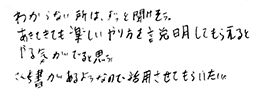 わからない所は、ずっと聞けそう。
あきてきても楽しいやり方を説明してもらえると
やる気がでると思う
書があるようなので活用させてもらいたい。